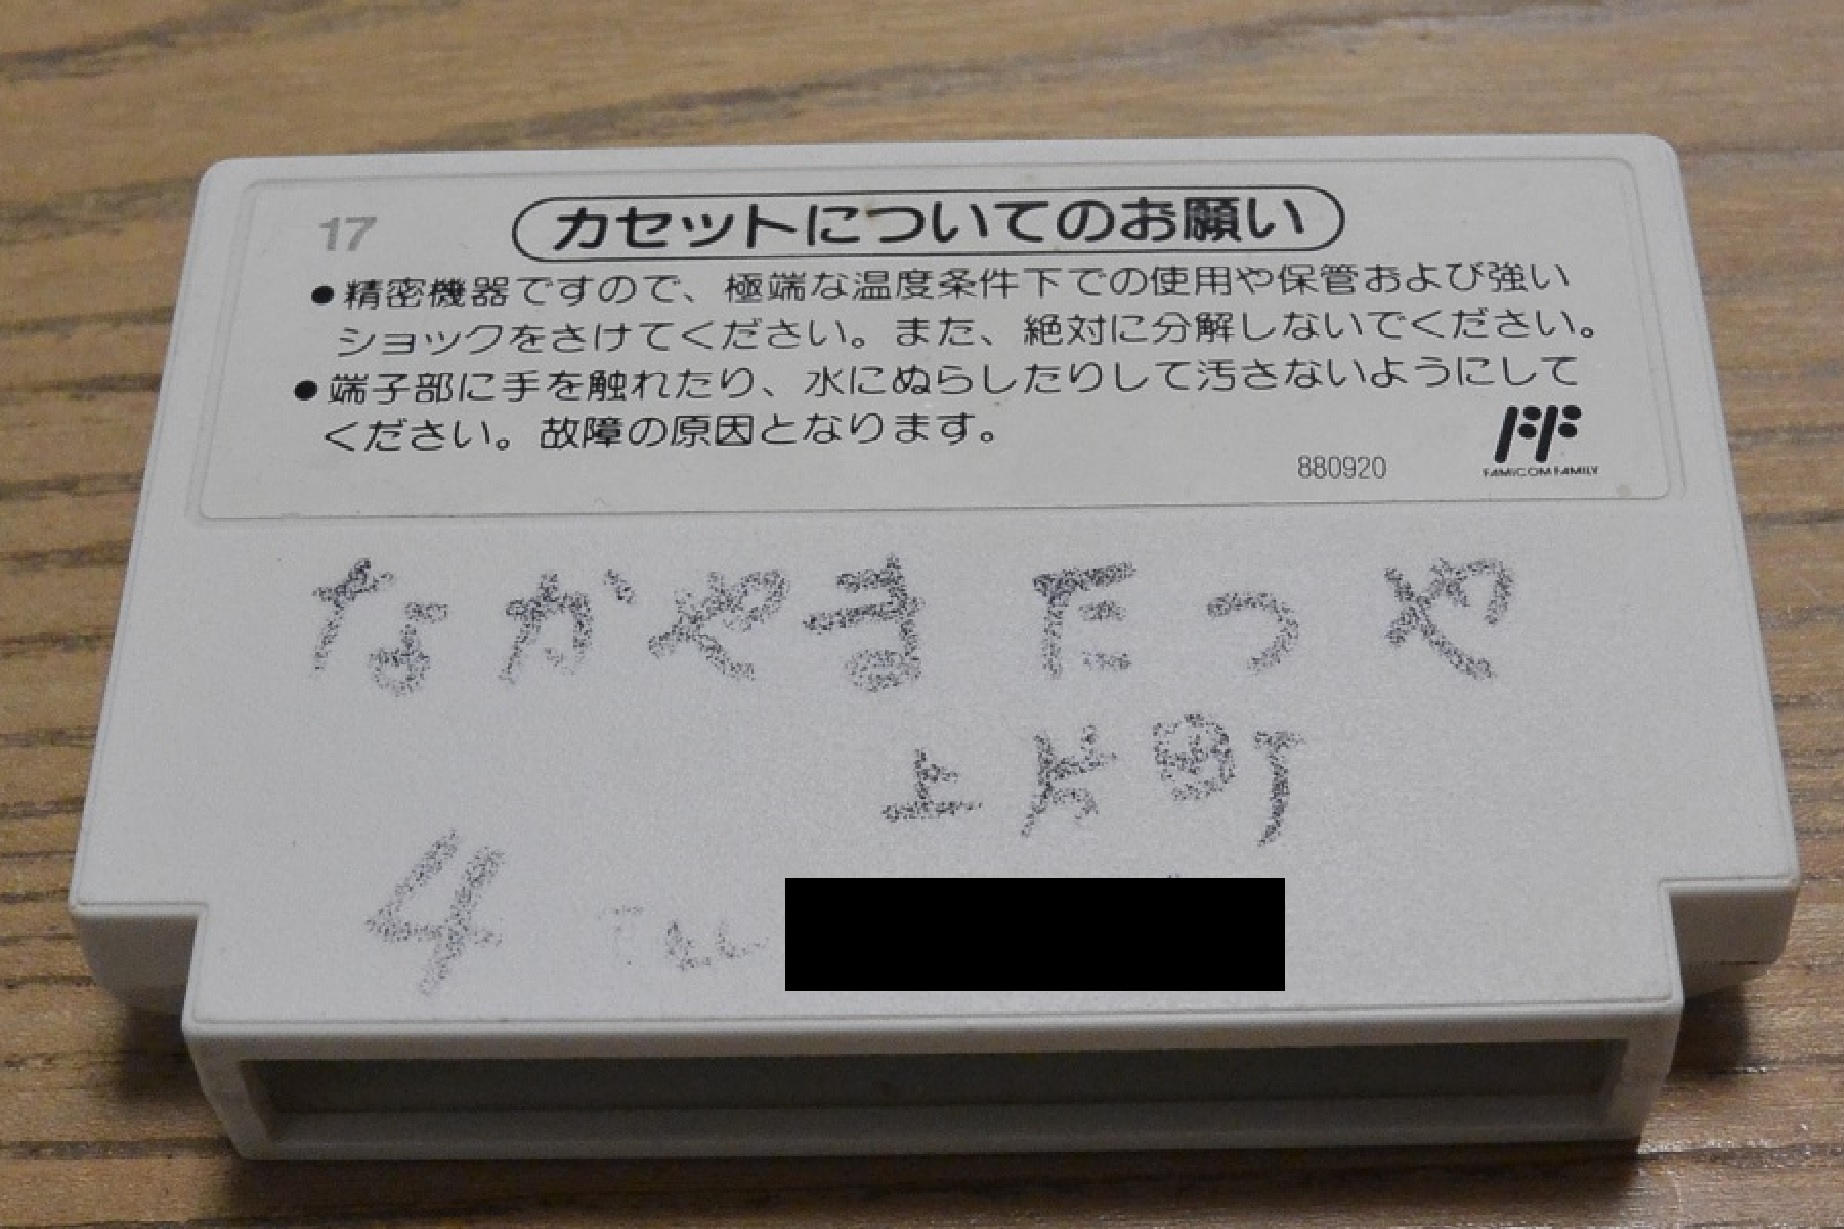 17
カセットについてのお願い
●精密機器ですので、極端な温度条件下での使用や保管および強い
ショックをさけてください。また、絶対に分解しないでください。
●端子部に手を触れたり、水にぬらしたりして汚さないようにして
ください。故障の原因となります。
880920
FAMICOM FAMILY
なかやまたつや
上片町
4